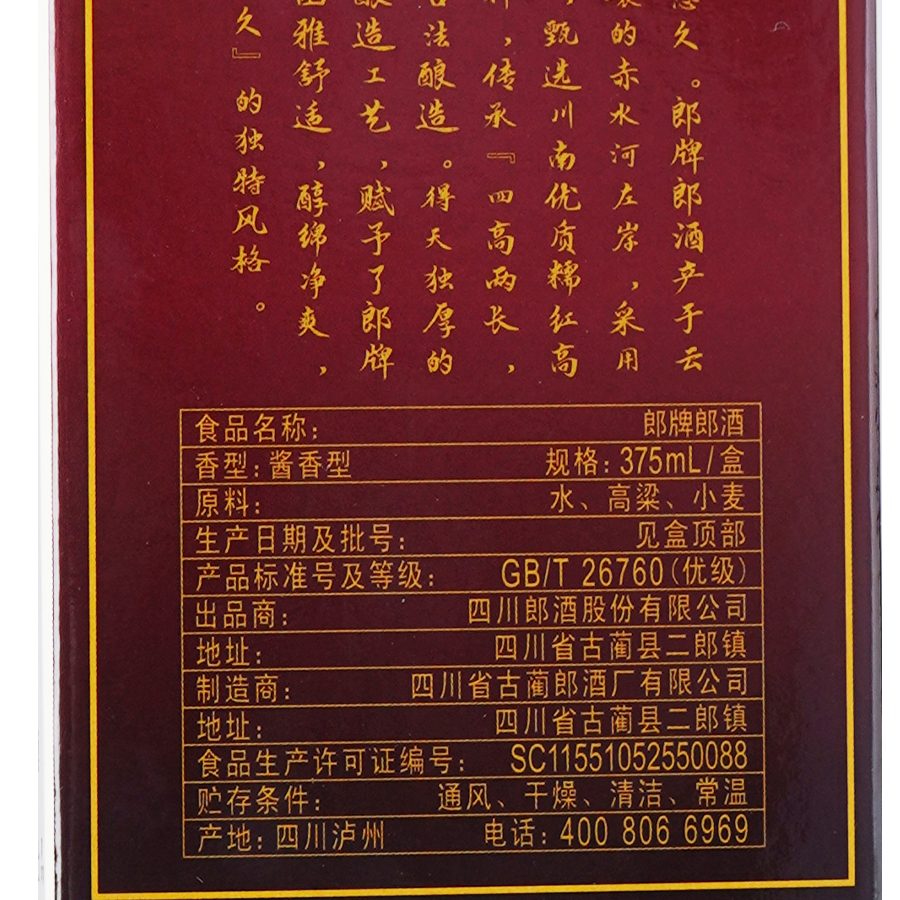 久。郎牌郎酒产于云
的赤水河左岸，采用
，甄选川南优质糯红高
，传承『四高两长，
法酿造。得天独厚的
酿造工艺，赋予了郎牌
雅舒适，醇绵净爽，
久』的独特风格。
食品名称： 郎牌郎酒
香型：酱香型 规格：375mL/盒
原料： 水、高粱、小麦
生产日期及批号： 见盒顶部
产品标准号及等级： GB/T 26760(优级)
出品商： 四川郎酒股份有限公司
地址： 四川省古蔺县二郎镇
制造商： 四川省古蔺郎酒厂有限公司
地址： 四川省古蔺县二郎镇
食品生产许可证编号： SC11551052550088
贮存条件： 通风、干燥、清洁、常温
产地：四川泸州 电话：400 806 6969